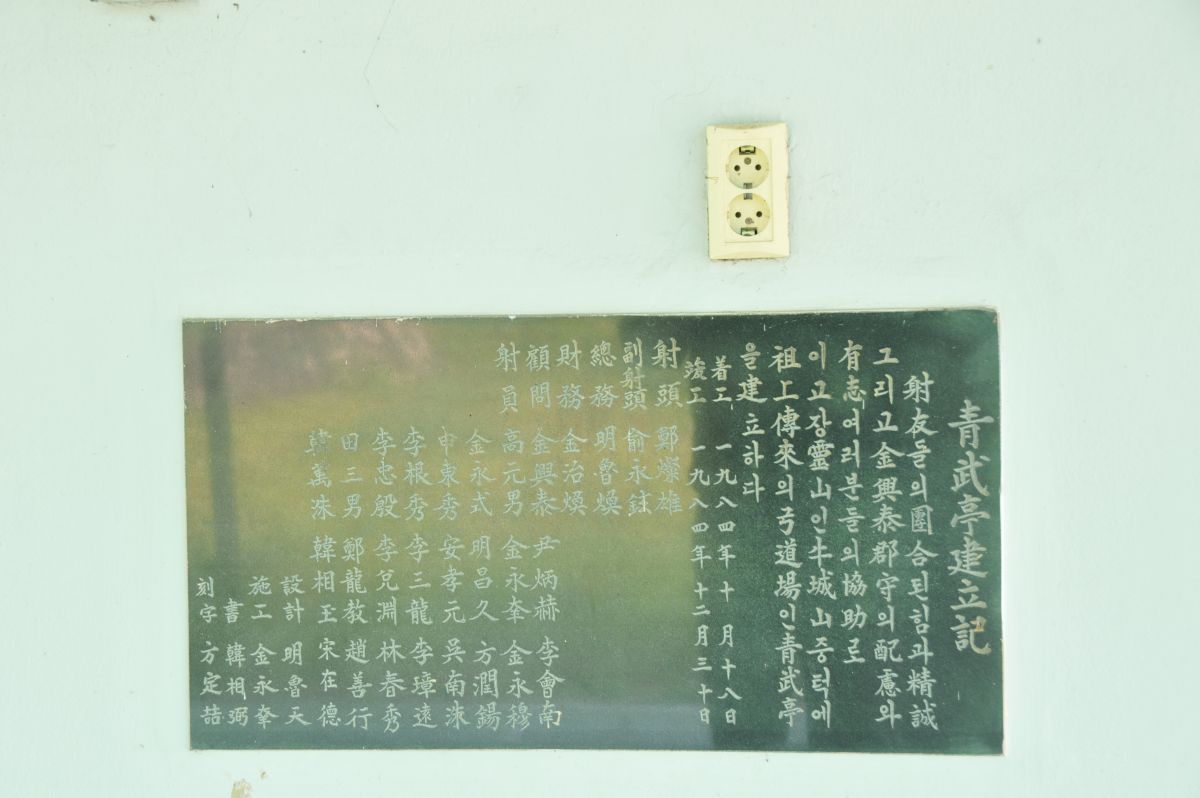 青武亭建立記
射友들의團合된힘과精誠
그리고金興泰郡守의配慮와
有志여러분들의協助로
이고장靈山인牛城山중턱에
祖上傳來의弓道場인青武亭
을建立하다
着工 一九八四年 十 月十八日
竣工 一九八四年十二月三十日
射頭 鄭燦雄
副射頭 俞永銶
總務 明魯煥
財務 金治煥
顧問 金興泰 尹炳赫 李會南
射員 高元男 金永奎 金永穆
金永式 明昌久 方潤錫
申東秀 安孝元 吳南洙
李根秀 李三龍 李璋遠
李忠殷 李兌淵 林春秀
田三男 鄭龍教 趙善行
韓萬洙 韓相玉 宋在德
設計 明魯天
施工 金永奎
書 韓相弼
刻字 方定喆